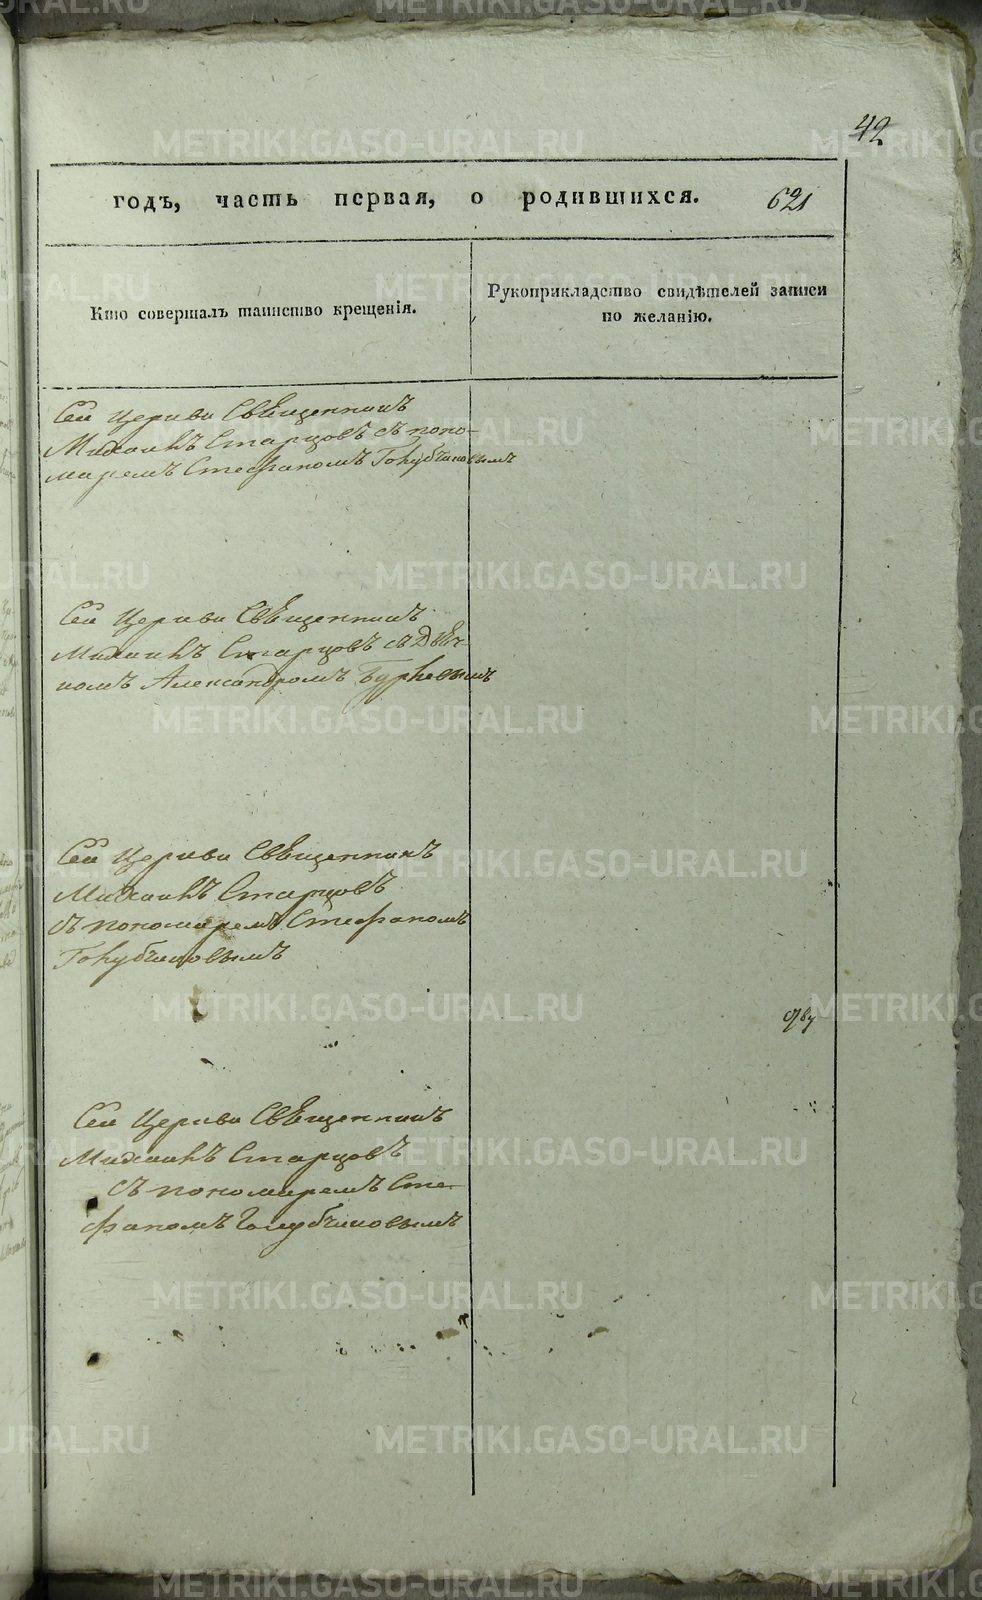 42
годъ, часть первая, о родившихся. 621
Кто совершалъ таинство крещенія.
Рукоприкладство свидѣтелей записи
по желанію.
Сей Церкви Священникъ
Михаилъ Старцовъ съ поно-
маремъ Стефаномъ Голубчиковымъ
Сей Церкви Священникъ
Михаилъ Старцовъ съ Дьяч-
комъ Александромъ
Сей Церкви Священникъ
Михаилъ Старцовъ
съ пономаремъ Стефаномъ
Голубчиковымъ
Сей Церкви Священникъ
Михаилъ Старцовъ
съ пономаремъ Сте-
фаномъ Голубчиковымъ
METRIKI.GASO-URAL.RU